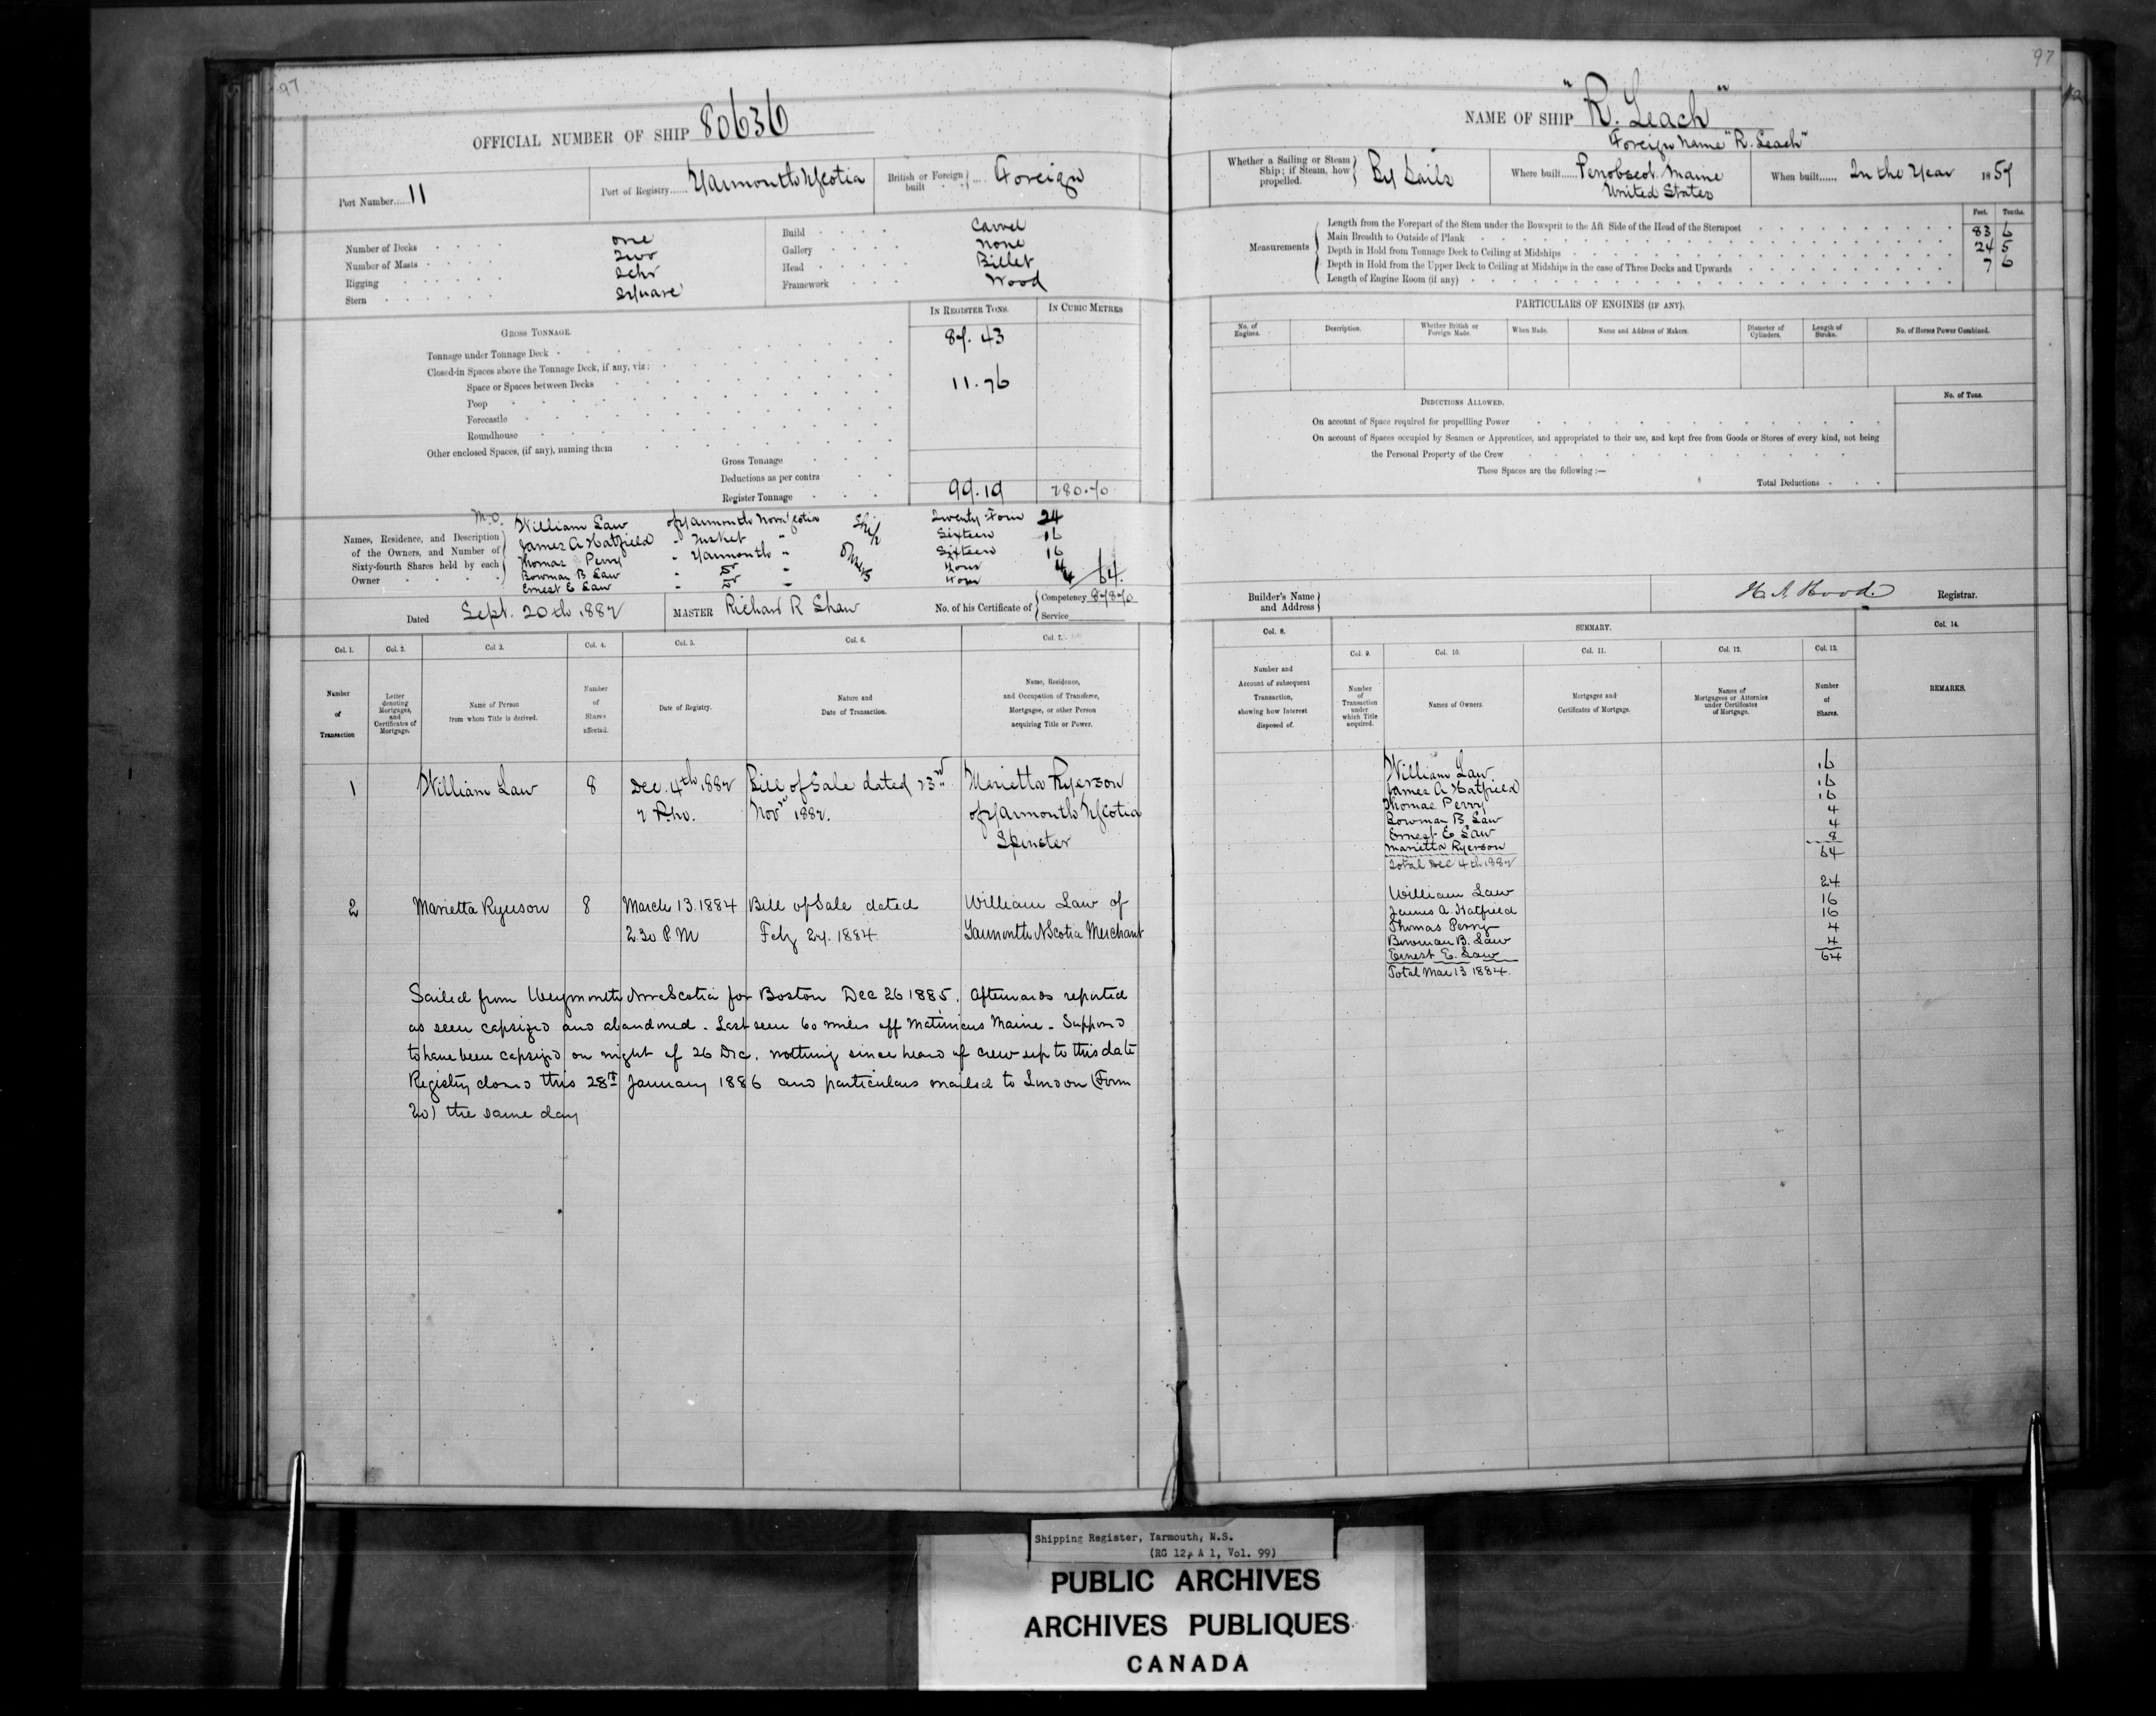 97
OFFICIAL NUMBER OF SHIP 80636
Port Number......11
Port of Registry...... Yarmouth NScotia
British or Foreign built .... Foreign
Number of Decks one
Number of Masts Two
Rigging Schr
Stern Square
Build Carvel
Gallery none
Head Billet
Framework Wood
IN REGISTER TONS. IN CUBIC METRES
GROSS TONNAGE.
Tonnage under Tonnage Deck 87.43
Closed-in Spaces above the Tonnage Deck, if any, viz:
Space or Spaces between Decks 11.76
Poop
Forecastle
Roundhouse
Other enclosed Spaces, (if any), naming them
Gross Tonnage
Deductions as per contra
Register Tonnage 99.19 280.70
Names, Residence, and Description of the Owners, and Number of Sixty-fourth Shares held by each Owner
M.O. William Law of Yarmouth Nova Scotia Twenty Four 24
James A Hatfield " Tusket " Sixteen 16
Thomas Perry " Yarmouth " Sixteen 16
Bowman B Law " Do " Four 4
Ernest E Law " Do " Four 4
Ship Owners
64.
Dated Sept. 20th 1882
MASTER Richard R Shaw
No. of his Certificate of Competency 87870
Service
Col. 1. Col. 2. Col 3. Col. 4. Col. 5. Col. 6. Col. 7.
Number of Transaction
Letter denoting Mortgages, and Certificates of Mortgage.
Name of Person from whom Title is derived.
Number of Shares affected.
Date of Registry.
Nature and Date of Transaction.
Name, Residence, and Occupation of Transferee, Mortgagee, or other Person acquiring Title or Power.
1 William Law 8 Dec. 4th 1882 Bill of Sale dated 23rd Marietta Ryerson
2 P.M. Novr 1882. of Yarmouth NScotia
Spinster
2 Marietta Ryerson 8 March 13. 1884 Bill of Sale dated William Law of
2.30 P.M Feby 27. 1884. Yarmouth NScotia Merchant
Sailed from Weymouth Nova Scotia for Boston Dec 26 1885. Afterwards reported
as seen capsized and abandoned. Last seen 60 miles off Matinicus Maine. Supposed
to have been capsized on night of 26 Dec. nothing since heard of crew up to this date
Registry closed this 28th January 1886 and particulars mailed to London (Form
20) the same day
97
NAME OF SHIP "R. Leach"
Foreign Name "R. Leach"
Whether a Sailing or Steam Ship; if Steam, how propelled. By Sails
Where built...... Penobscot Maine
United States
When built...... In the Year 1859
Feet. Tenths.
Measurements
Length from the Forepart of the Stem under the Bowsprit to the Aft Side of the Head of the Sternpost 83 6
Main Breadth to Outside of Plank 24 5
Depth in Hold from Tonnage Deck to Ceiling at Midships 7 6
Depth in Hold from the Upper Deck to Ceiling at Midships in the case of Three Decks and Upwards
Length of Engine Room (if any)
PARTICULARS OF ENGINES (IF ANY).
No. of Engines. Description. Whether British or Foreign Made. When Made. Name and Address of Makers. Diameter of Cylinders. Length of Stroke. No. of Horses Power Combined.
DEDUCTIONS ALLOWED. No. of Tons.
On account of Space required for propelling Power
On account of Spaces occupied by Seamen or Apprentices, and appropriated to their use, and kept free from Goods or Stores of every kind, not being
the Personal Property of the Crew
These Spaces are the following :—
Total Deductions
Builder's Name and Address
H. A. Hood. Registrar.
SUMMARY.
Col. 8. Col. 9. Col. 10. Col. 11. Col. 12. Col. 13. Col. 14.
Number and Account of subsequent Transaction, showing how Interest disposed of.
Number of Transaction under which Title acquired.
Names of Owners.
Mortgages and Certificates of Mortgage.
Names of Mortgagees or Attornies under Certificates of Mortgage.
Number of Shares.
REMARKS.
William Law 16
James A Hatfield 16
Thomas Perry 16
Bowman B. Law 4
Ernest E Law 4
Marietta Ryerson 8
Total Dec 4th 1882 64
William Law 24
James A. Hatfield 16
Thomas Perry 16
Bowman B. Law 4
Ernest E. Law 4
Total Mar 13 1884. 64
Shipping Register, Yarmouth, N.S.
(RG 12, A 1, Vol. 99)
PUBLIC ARCHIVES
ARCHIVES PUBLIQUES
CANADA